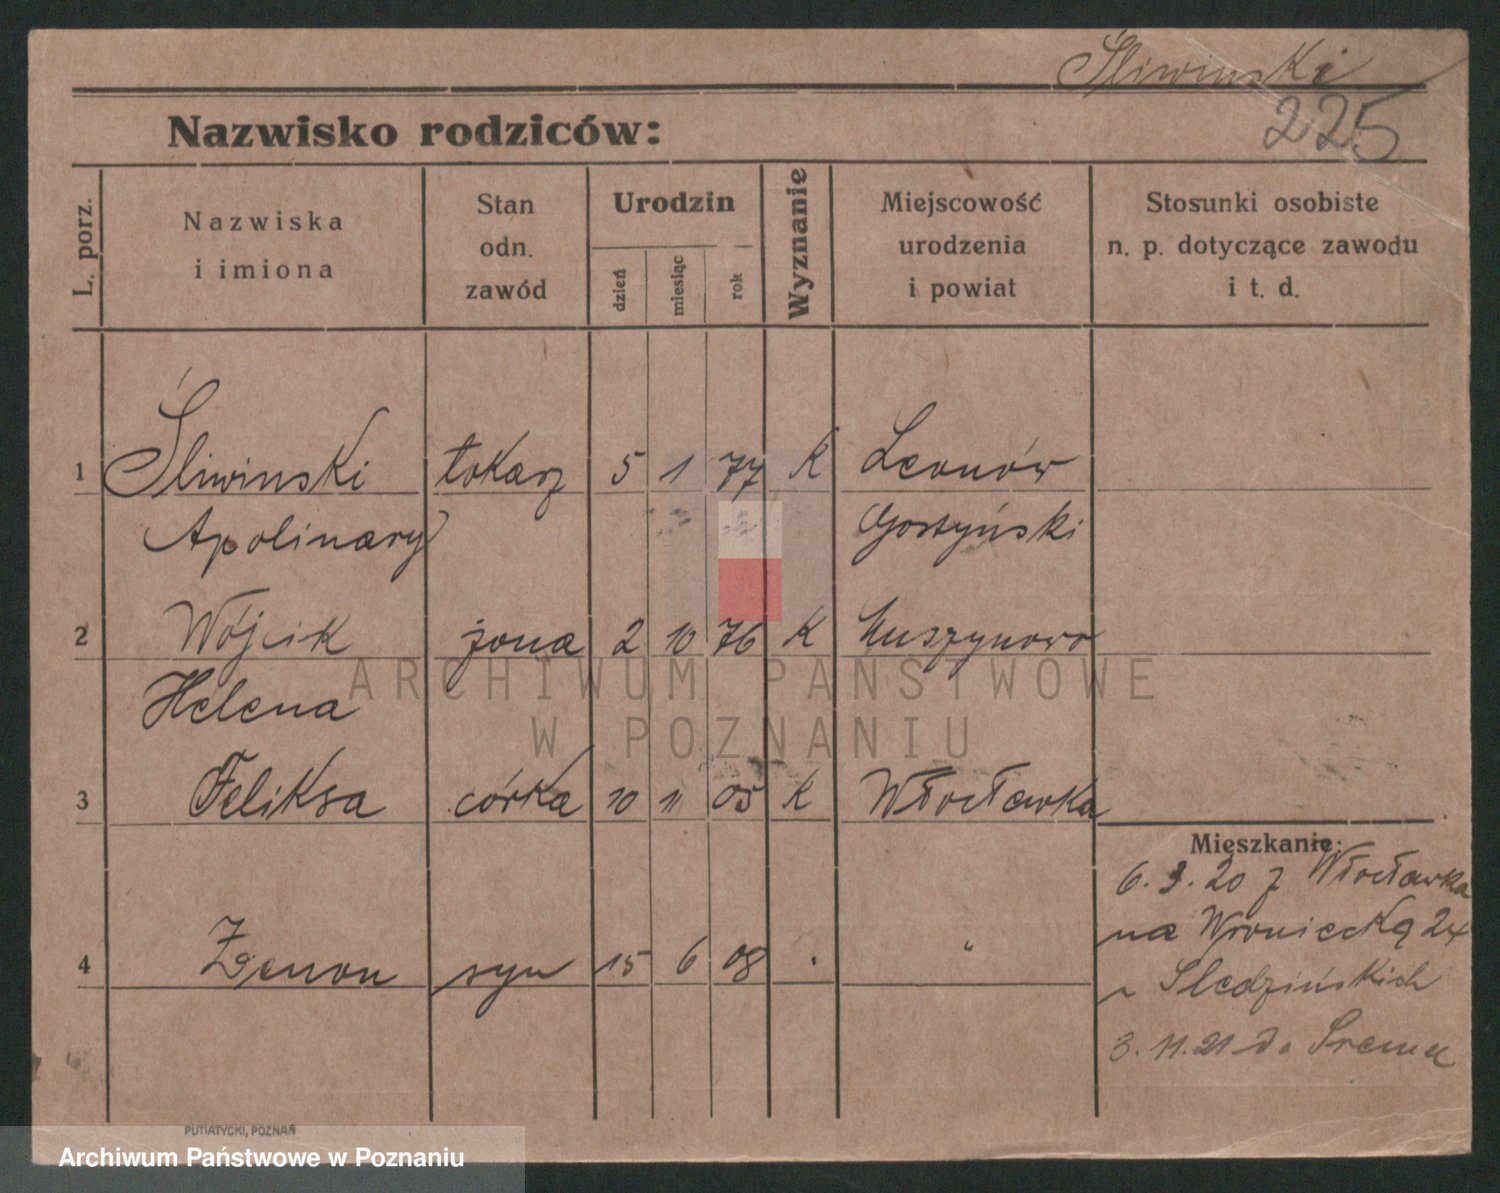 Śliwinski
225
Nazwisko rodziców:
L. porz.
Nazwiska
i imiona
Stan
odn.
zawód
Urodzin
dzień
miesiąc
rok
Wyznanie
Miejscowość
urodzenia
i powiat
Stosunki osobiste
n. p. dotyczące zawodu
i t. d.
1 Śliwinski tokarz 5 1 77 K Leonów
Apolinary Gostyński
2 Wójcik żona 2 10 76 K
Helena
3 Feliksa córka 10 11 05 K Włocławka
4 Zenon syn 15 6 08 . "
Mieszkanie:
6.3.20 z Włocławka
na Wroniecką 24
Sledzińskich
3.11.21 do Śrema
PUTIATYCKI, POZNAŃ
ARCHIWUM PAŃSTWOWE
W POZNANIU
Archiwum Państwowe w Poznaniu